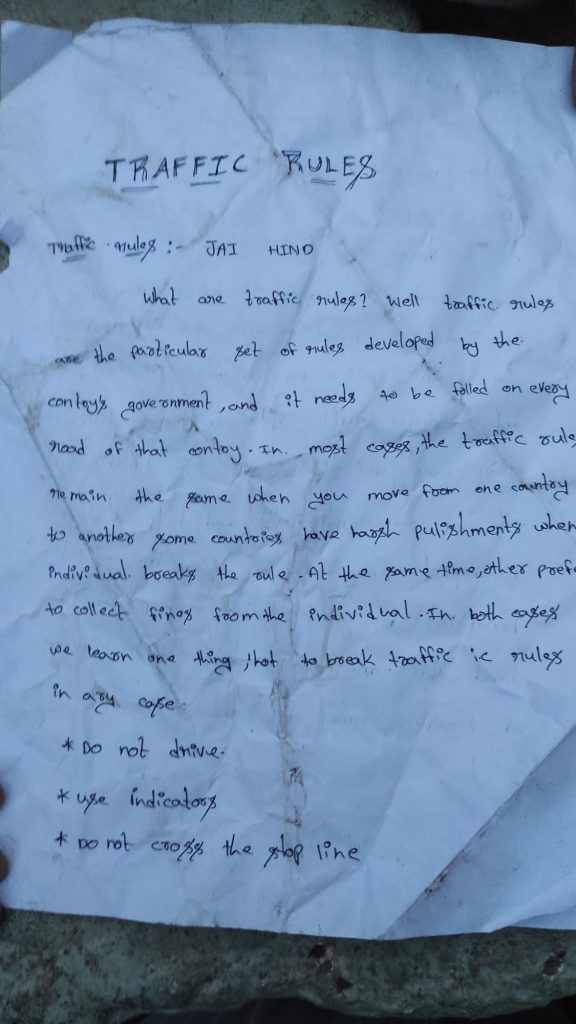 TRAFFIC RULES
Traffic rules :- JAI HIND
What are traffic rules? Well traffic rules
are the particular set of rules developed by the
contoy's government, and it needs to be folled on every
road of that contoy. In. most cases, the traffic rule
remain. the same when you move from one country
to another some countries have harsh pulishments when
individual. breaks the rule. At the same time, other pref
to collect fines from the individual. In. both cases
we learn one thing, not to break traffic ic rules
in any case.
* Do not drive.
* use indicators
* Do not cross the stop line